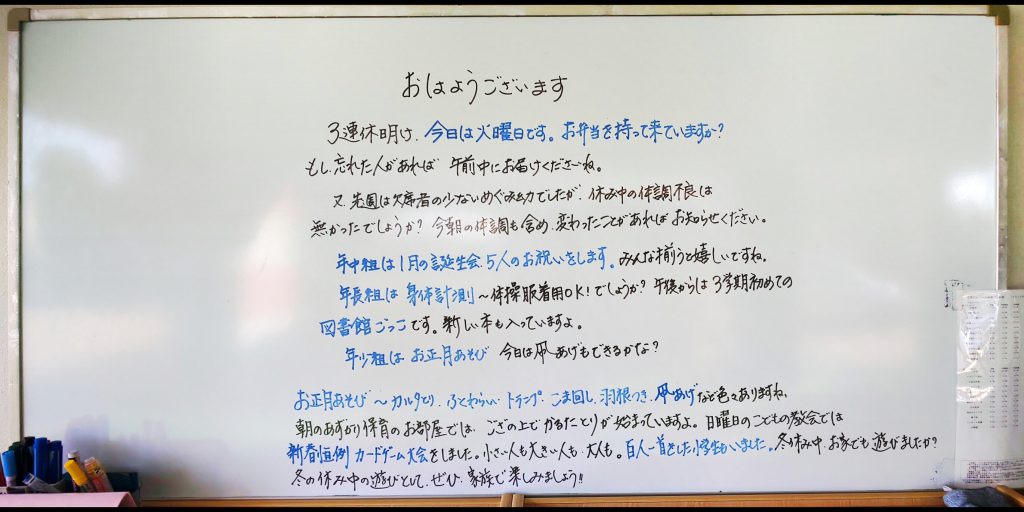 おはようございます
3連休明け、今日は火曜日です。お弁当を持って来ていますか?
もし、忘れた人があれば 午前中にお届けくださいね。
又、先週は欠席者の少ないめぐみっ子でしたが、休み中の体調不良は
無かったでしょうか? 今朝の体調も含め、変わったことがあればお知らせください。
年中組は1月の誕生会、5人のお祝いをします。みんな揃うと嬉しいですね。
年長組は 身体計測〜体操服着用OK!でしょうか? 午後からは3学期初めての
図書館ごっこです。新しい本も入っていますよ。
年少組は お正月あそび 今日は凧あげもできるかな?
お正月あそび 〜カルタとり、ふくわらい、トランプ、こま回し、羽根つき、凧あげなど色々ありますね。
朝のあずかり保育のお部屋では、ござの上でかるたとりが始まっていますよ。日曜日のこどもの教会では
新春恒例 カードゲーム大会をしました。小さい人も大きい人も、大人も。百人一首をした小学生もいました。冬休み中、お家でも遊びましたか?
冬の休み中の遊びとして、ぜひ、家族で楽しみましょう!!